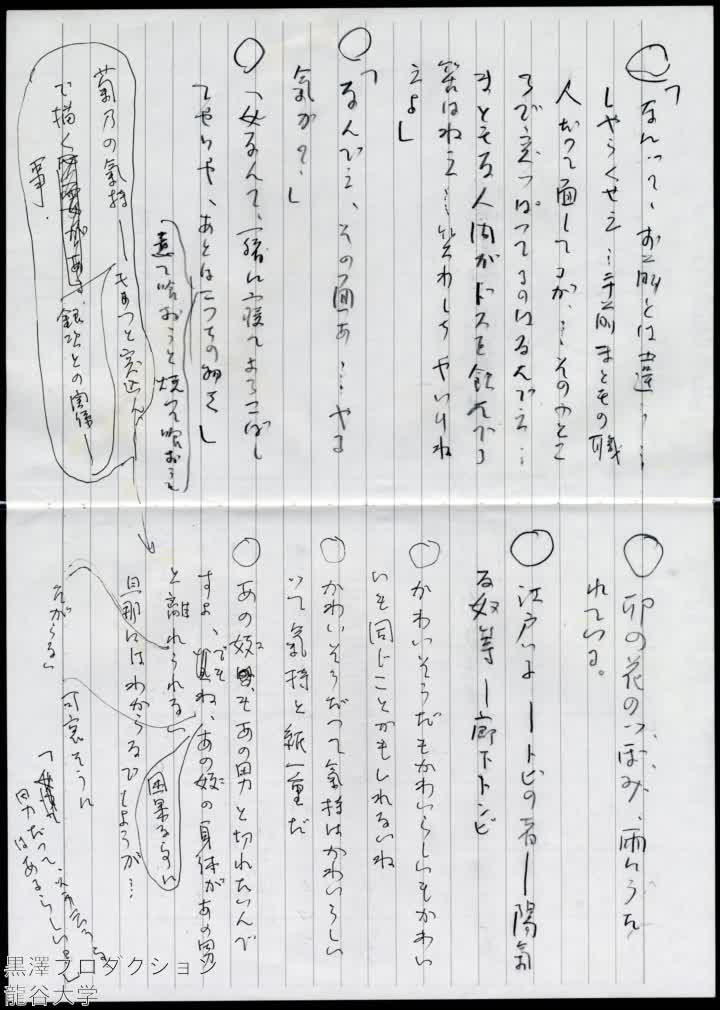 「なんて、お前とは違う…
しゃらくせえ…手前まともの職
人だって面してるが、…そのふところ
で突っぱってるのはなんでえ…
まともな人間がドスを飲んでる
筈はねえ…笑わしちゃいけね
えよ」
「なんでえ、その面あ…やる
気か?」
「女なんて、一緒に寝てよろこばし
てやりや、あとはこっちの物さ」
煮て喰おうと焼いて喰おうと
菊乃の氣持―もっと突込んで
で描く
銀次との関係―
事.
卯の花のつぼみ、雨にうた
れている。
江戸っ子―トビの者―陽氣
な奴等―廊下トンビ
かわいそうだもかわいらしいもかわい
いも同じことかもしれないね
かわいそうだって氣持はかわいらしい
って気持と紙一重だ
あの妓もあの男と切れたいんで
すよ、でもね、あの妓の身体があの男
と離れられない
因果な
旦那にはわからないでしょうが…
可哀そうに
男だって、
はあるらしい。」
黒澤プロダクション
龍谷大学